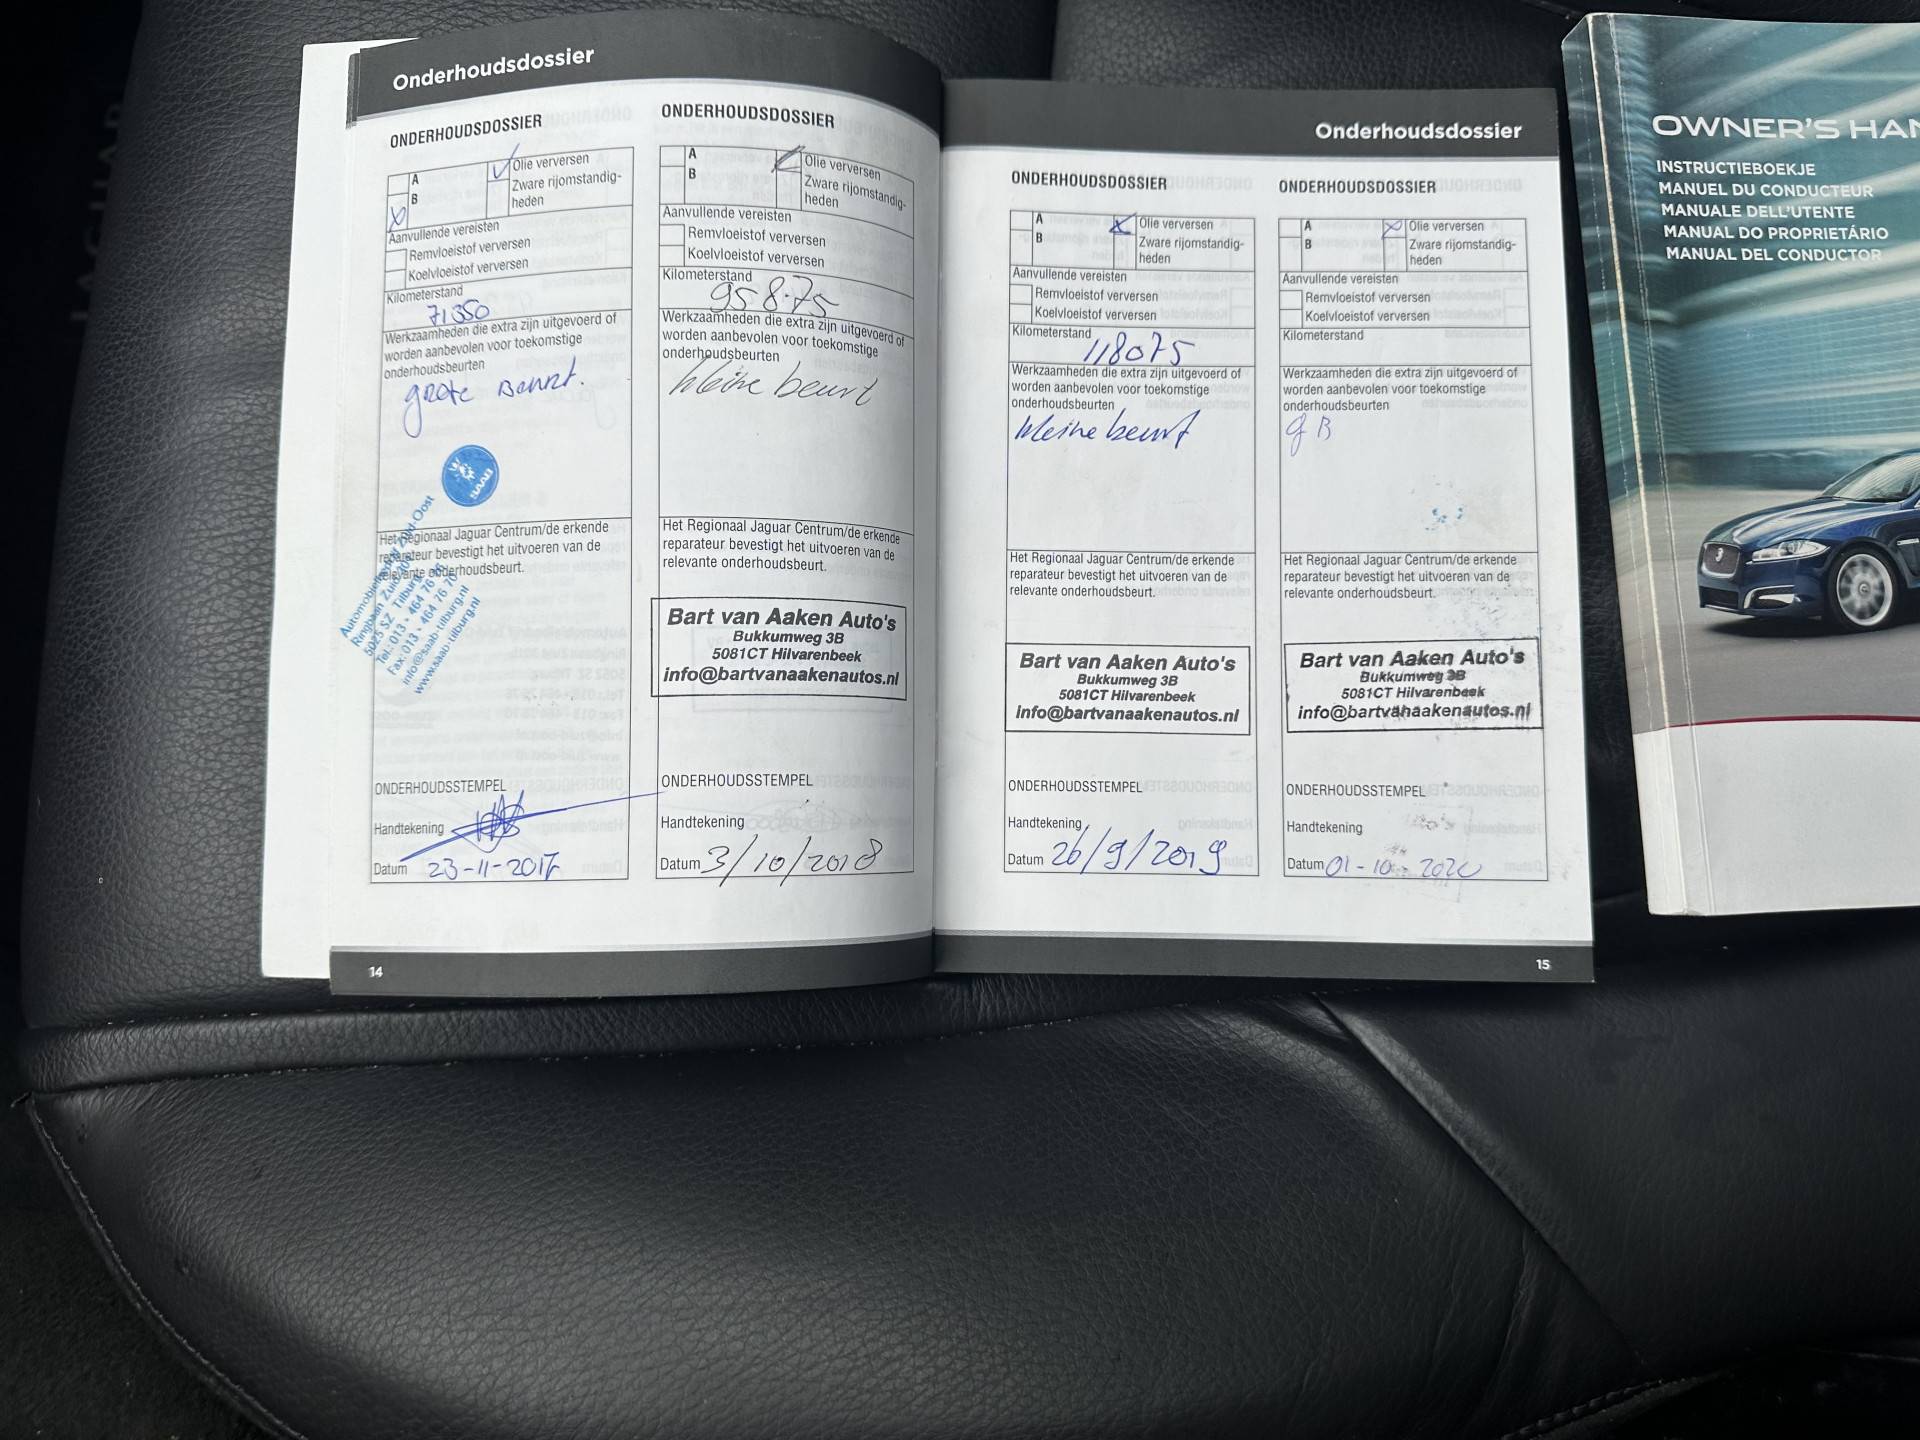 Onderhoudsdossier
ONDERHOUDSDOSSIER
A
B
Olie verversen
Zware rijomstandig-
heden
Aanvullende vereisten
Remvloeistof verversen
Koelvloeistof verversen
Kilometerstand
71350
Werkzaamheden die extra zijn uitgevoerd of
worden aanbevolen voor toekomstige
onderhoudsbeurten
grote Beurt.
SAAB
Het Regionaal Jaguar Centrum/de erkende
reparateur bevestigt het uitvoeren van de
relevante onderhoudsbeurt.
Automobielbedrijf Zuid-Oost
Ringbaan Zuid
5025 SZ Tilburg
Tel.: 013 - 464 76 76
Fax: 013 - 464 76 70
info@saab-tilburg.nl
www.saab-tilburg.nl
ONDERHOUDSSTEMPEL
Handtekening
Datum 23-11-2017
ONDERHOUDSDOSSIER
A
B
Olie verversen
Zware rijomstandig-
heden
Aanvullende vereisten
Remvloeistof verversen
Koelvloeistof verversen
Kilometerstand
95875
Werkzaamheden die extra zijn uitgevoerd of
worden aanbevolen voor toekomstige
onderhoudsbeurten
kleine beurt
Het Regionaal Jaguar Centrum/de erkende
reparateur bevestigt het uitvoeren van de
relevante onderhoudsbeurt.
Bart van Aaken Auto's
Bukkumweg 3B
5081CT Hilvarenbeek
info@bartvanaakenautos.nl
ONDERHOUDSSTEMPEL
Handtekening
Datum 3/10/2018
14
Onderhoudsdossier
ONDERHOUDSDOSSIER
A
B
Olie verversen
Zware rijomstandig-
heden
Aanvullende vereisten
Remvloeistof verversen
Koelvloeistof verversen
Kilometerstand
118075
Werkzaamheden die extra zijn uitgevoerd of
worden aanbevolen voor toekomstige
onderhoudsbeurten
kleine beurt
Het Regionaal Jaguar Centrum/de erkende
reparateur bevestigt het uitvoeren van de
relevante onderhoudsbeurt.
Bart van Aaken Auto's
Bukkumweg 3B
5081CT Hilvarenbeek
info@bartvanaakenautos.nl
ONDERHOUDSSTEMPEL
Handtekening
Datum 26/9/2019
ONDERHOUDSDOSSIER
A
B
Olie verversen
Zware rijomstandig-
heden
Aanvullende vereisten
Remvloeistof verversen
Koelvloeistof verversen
Kilometerstand
Werkzaamheden die extra zijn uitgevoerd of
worden aanbevolen voor toekomstige
onderhoudsbeurten
g B
Het Regionaal Jaguar Centrum/de erkende
reparateur bevestigt het uitvoeren van de
relevante onderhoudsbeurt.
Bart van Aaken Auto's
Bukkumweg 3B
5081CT Hilvarenbeek
info@bartvanaakenautos.nl
ONDERHOUDSSTEMPEL
Handtekening
Datum 01-10-2020
15
OWNER'S HAN
INSTRUCTIEBOEKJE
MANUEL DU CONDUCTEUR
MANUALE DELL'UTENTE
MANUAL DO PROPRIETÁRIO
MANUAL DEL CONDUCTOR
JAGUAR